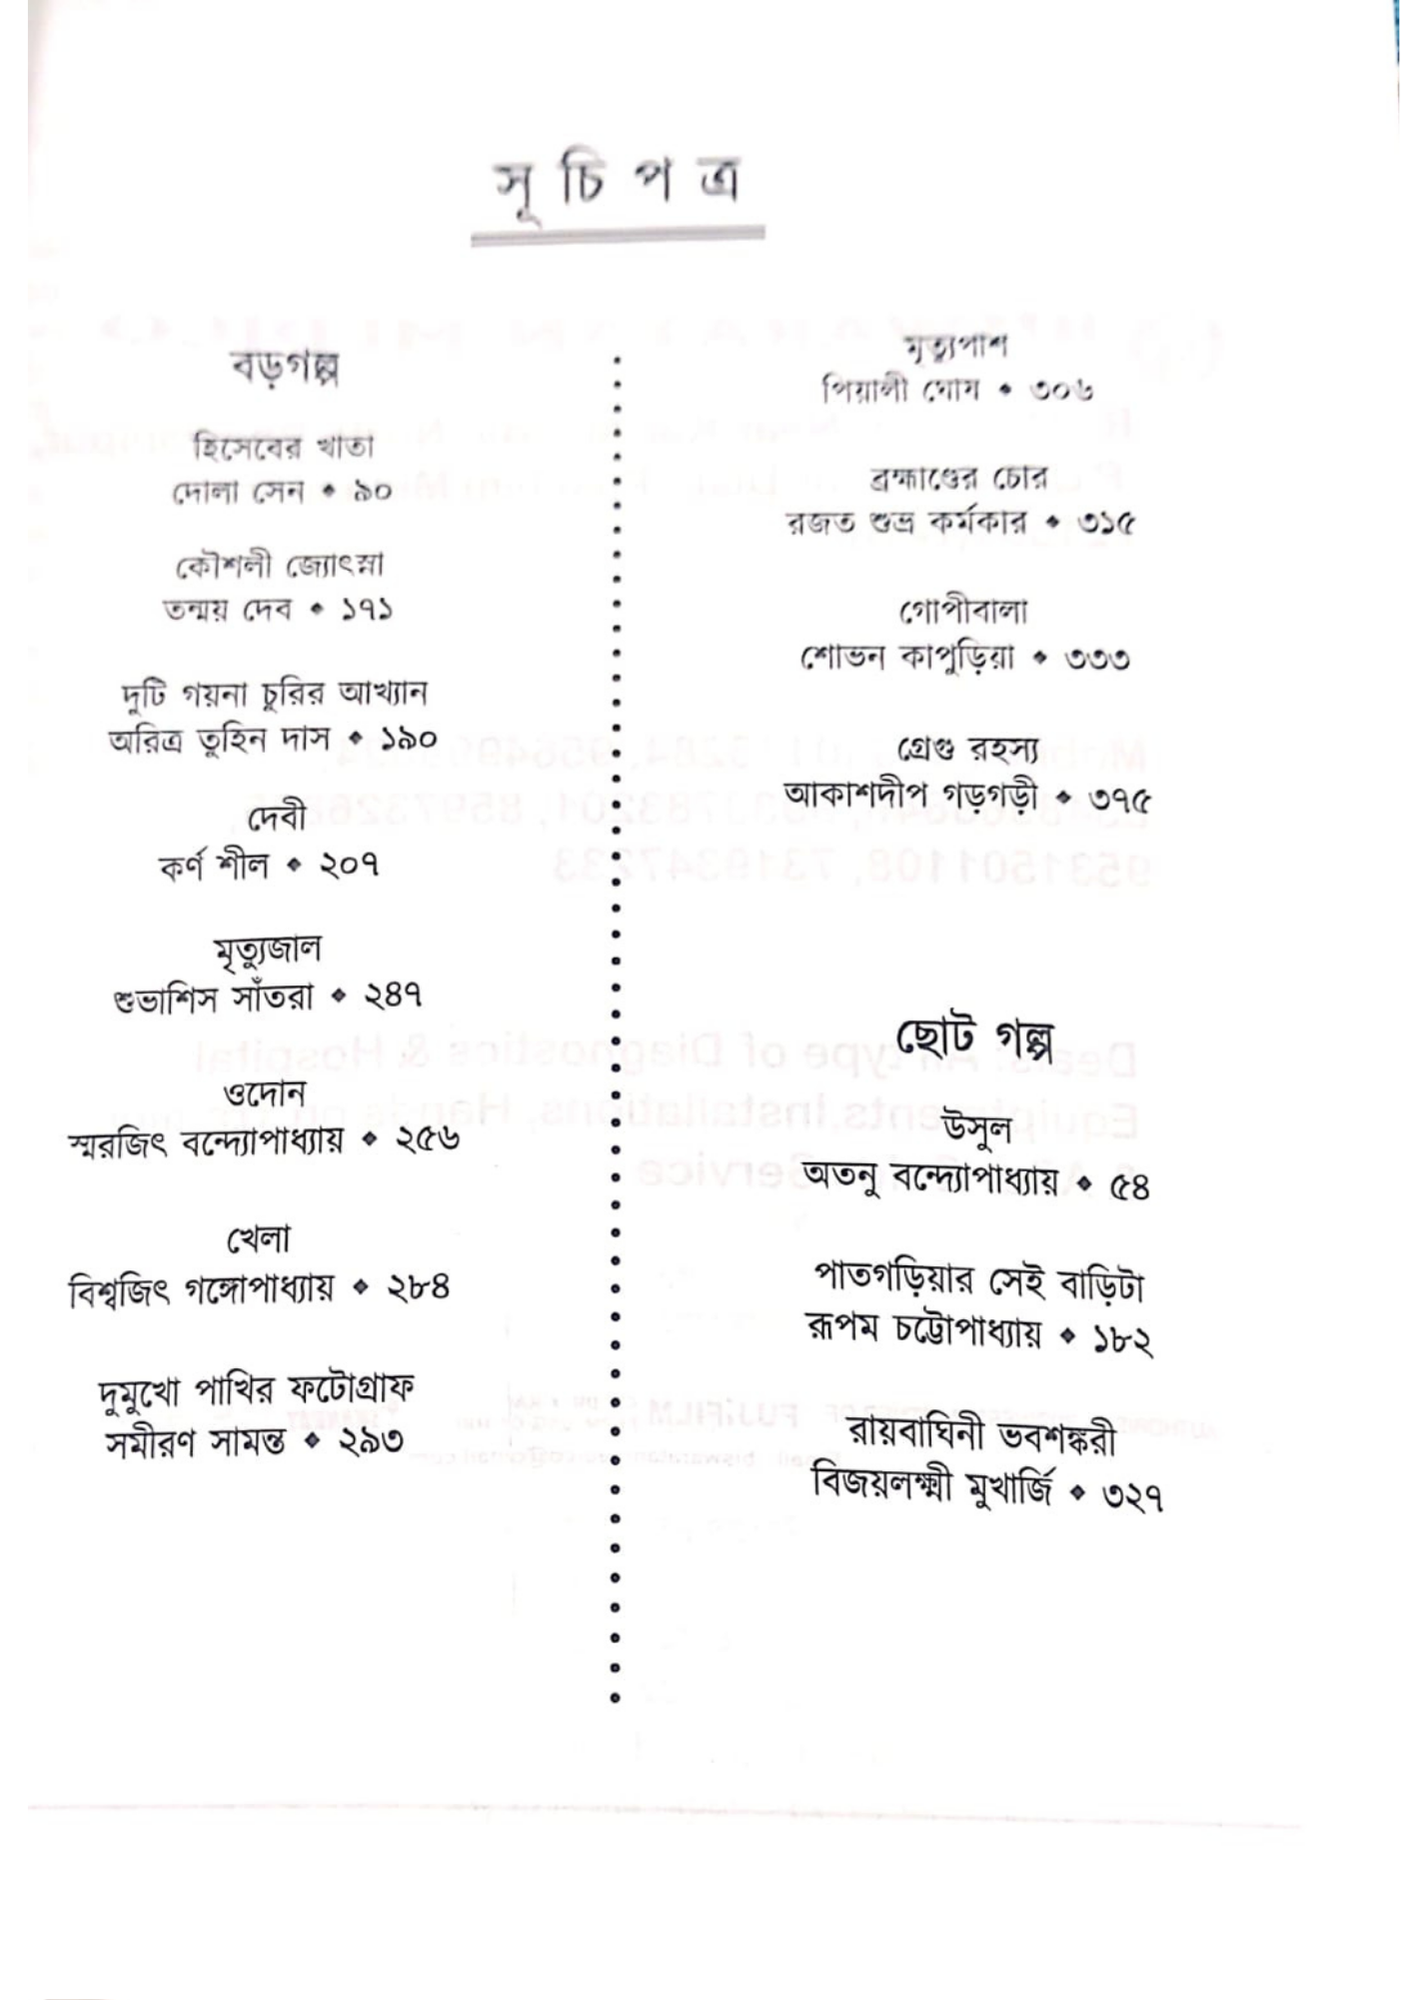 সূচিপত্র
বড়গল্প
হিসেবের খাতা
দোলা সেন ◆ ৯০
কৌশলী জ্যোৎস্না
তন্ময় দেব ◆ ১৭১
দুটি গয়না চুরির আখ্যান
অরিত্র তুহিন দাস ◆ ১৯০
দেবী
কর্ণ শীল ◆ ২০৭
মৃত্যুজাল
শুভাশিস সাঁতরা ◆ ২৪৭
ওদোন
স্মরজিৎ বন্দ্যোপাধ্যায় ◆ ২৫৬
খেলা
বিশ্বজিৎ গঙ্গোপাধ্যায় ◆ ২৮৪
দুমুখো পাখির ফটোগ্রাফ
সমীরণ সামন্ত ◆ ২৯৩
মৃত্যুপাশ
পিয়ালী ঘোষ ◆ ৩০৬
ব্রহ্মাণ্ডের চোর
রজত শুভ্র কর্মকার ◆ ৩১৫
গোপীবালা
শোভন কাপুড়িয়া ◆ ৩৩৩
গ্রেণ্ড রহস্য
আকাশদীপ গড়গড়ী ◆ ৩৭৫
ছোট গল্প
উসুল
অতনু বন্দ্যোপাধ্যায় ◆ ৫৪
পাতগড়িয়ার সেই বাড়িটা
রূপম চট্টোপাধ্যায় ◆ ১৮২
রায়বাঘিনী ভবশঙ্করী
বিজয়লক্ষ্মী মুখার্জি ◆ ৩২৭